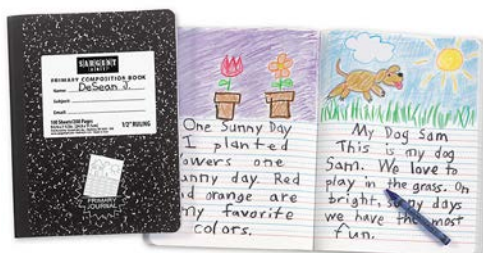 SARGENT
PRIMARY COMPOSITION BOOK
Name: DeSean J.
Subject:
Email:
100 Sheets/200 Pages
1/2" RULING
PRIMARY
JOURNAL
One Sunny Day
I planted
owers one
unny day. Red
d orange are
my favorite
colors.
My Dog Sam
This is my dog
Sam. We love to
play in the grass. On
bright, sunny days
we have the most
fun.